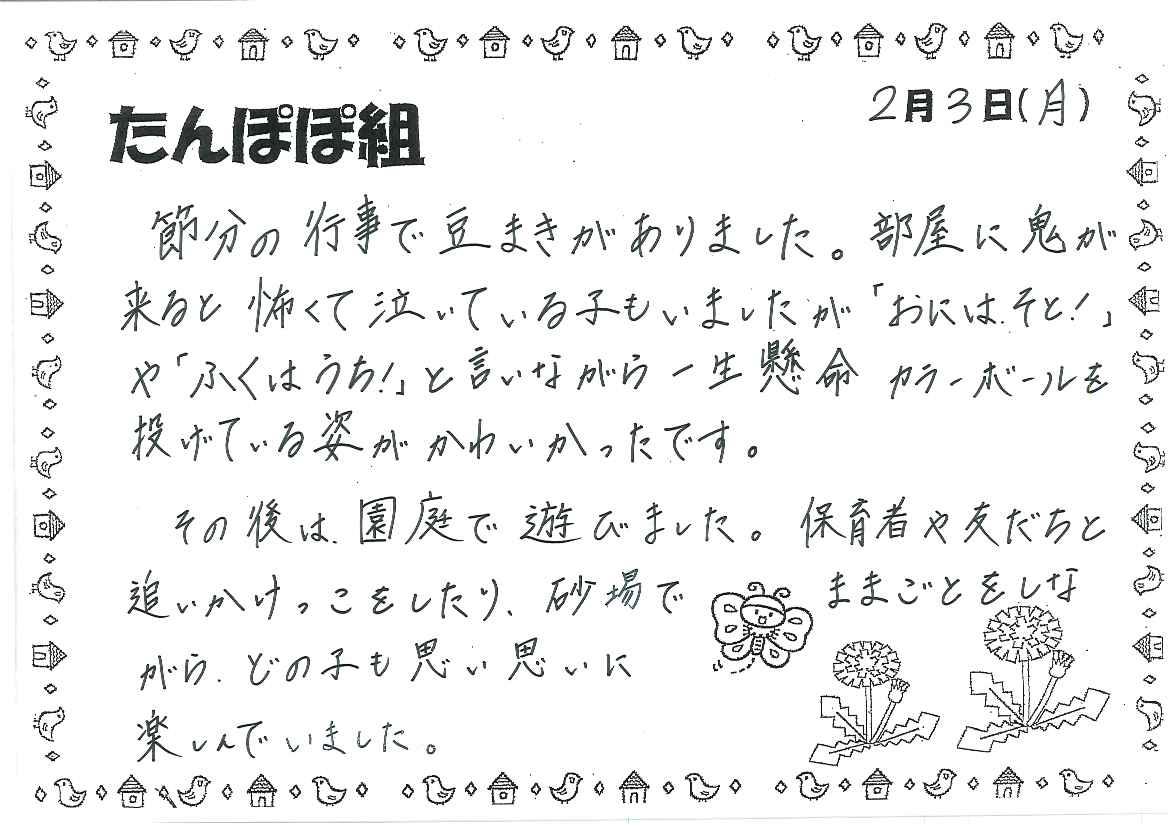 たんぽぽ組
2月3日(月)
節分の行事で豆まきがありました。部屋に鬼が
来ると怖くて泣いている子もいましたが「おには、そと!」
や「ふくはうち!」と言いながら一生懸命カラーボールを
投げている姿がかわいかったです。
その後は、園庭で遊びました。保育者や友だちと
追いかけっこをしたり、砂場でままごとをしな
がら、どの子も思い思いに
楽しんでいました。